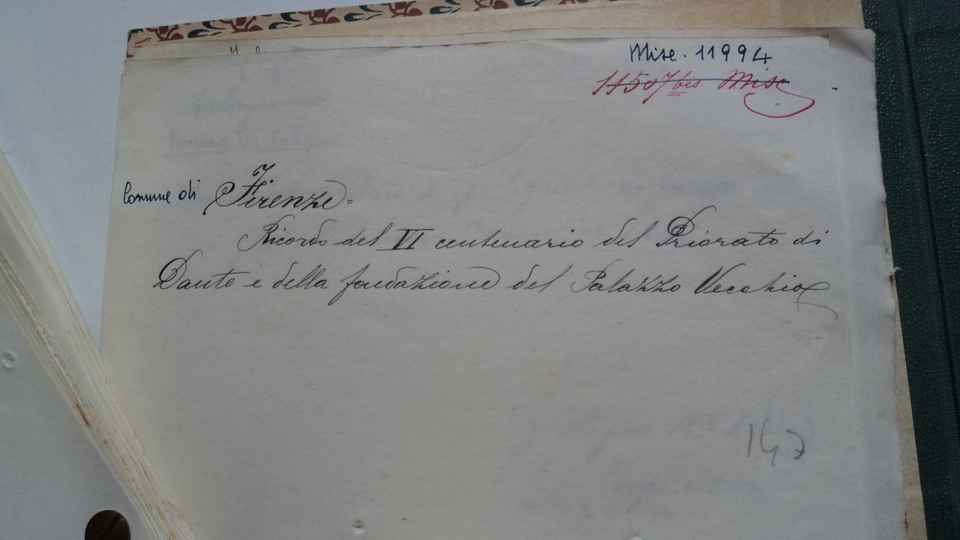 Misc. 11994
11507 bis Misc
Comune di Firenze.
Ricordo del VI centenario del Priorato di
Dante e della fondazione del Palazzo Vecchio
147